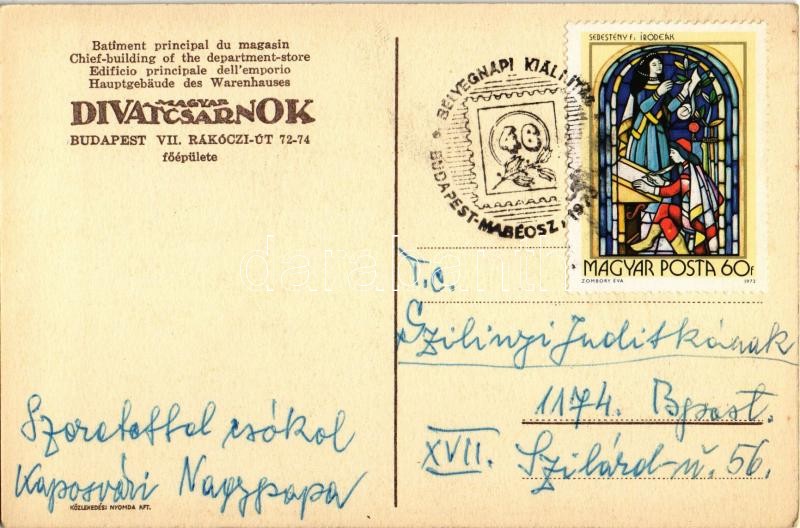 Batîment principal du magasin
Chief-building of the department-store
Edificio principale dell'emporio
Hauptgebäude des Warenhauses
MAGYAR
DIVATCSARNOK
BUDAPEST VII. RÁKÓCZI-ÚT 72-74
főépülete
Szeretettel csókol
Kaposvári Nagypapa
KÖZLEKEDÉSI NYOMDA KFT.
BÉLYEGNAPI KIÁLLÍTÁS
46
BUDAPEST-MABÉOSZ, 197
SEBESTÉNY F. IRÓDEÁK
MAGYAR POSTA 60f
ZOMBORY ÉVA 1972
T.c.
Szilinyi Juditkának
1174. Bpest.
XVII. Szilárd-u. 56.